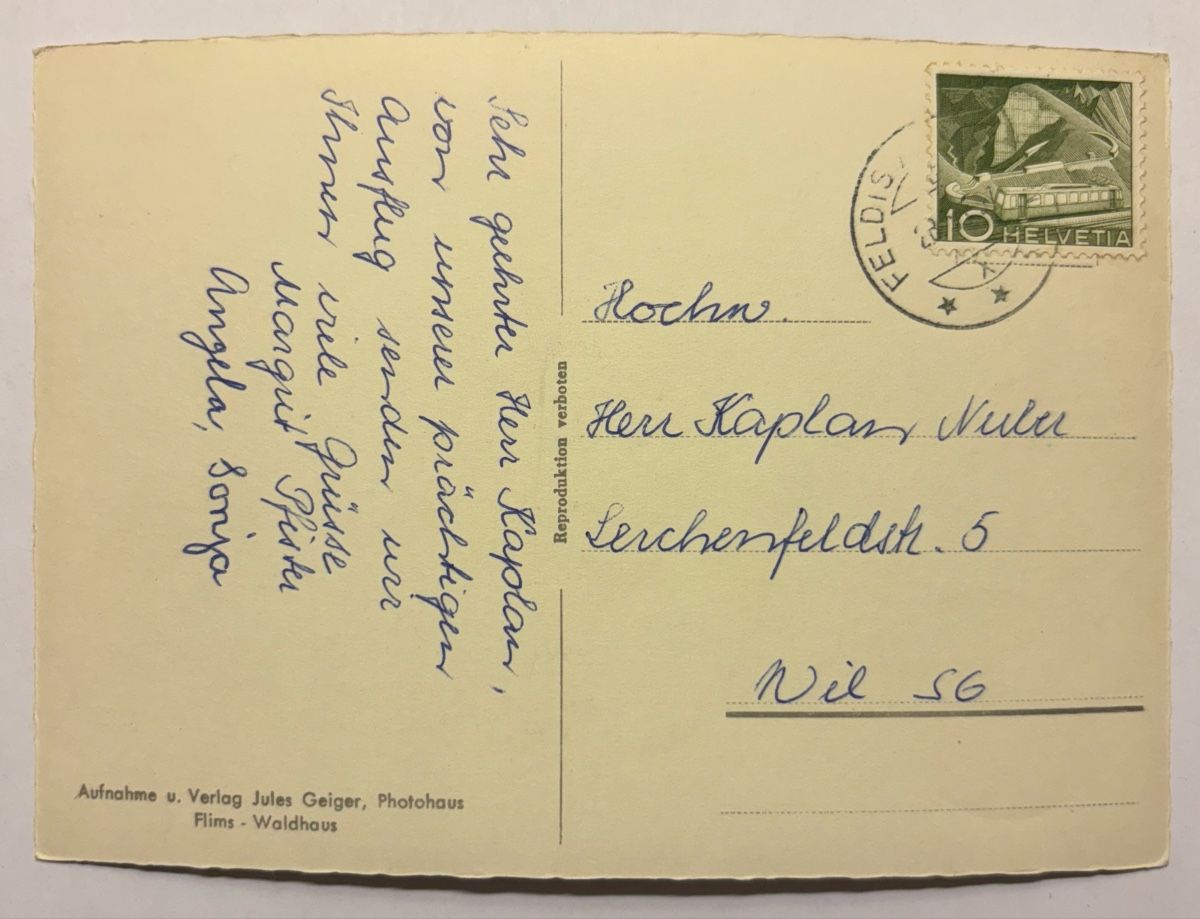 Sehr geehrter Herr Kaplan,
von unserer prächtigen
Ausflug senden wir
Ihnen viele Grüsse
Margrit Pfister
Angela, Sonja
Aufnahme u. Verlag Jules Geiger, Photohaus
Flims - Waldhaus
Reproduktion verboten
FELDIS
10 HELVETIA
Hochw.
Herr Kaplan
Lerchenfeldstr. 5
Wil SG